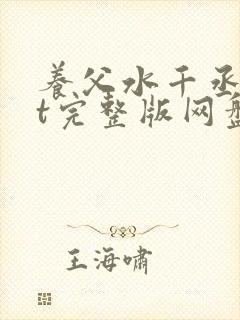 养父水千丞
t完整版网盘
王海啸